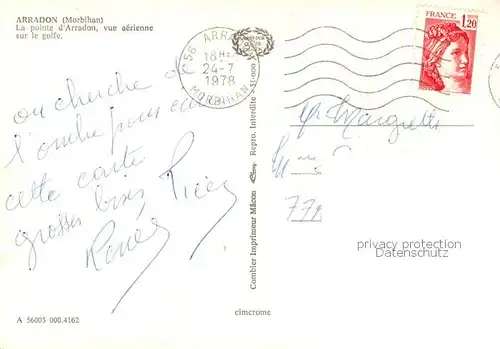 ARRADON (Morbihan)
La pointe d'Arradon, vue aérienne
sur le golfe.
56 ARRADON
18H
24-7
1978
MORBIHAN
FRANCE
1,20
on cherche
l'ombre pour
cette carte
grosses bises
Renée
Mr Margrette
77
Combier Imprimeur Mâcon
Repro. Interdite
privacy protection
Datenschutz
cimcrome
A 56003 000.4162